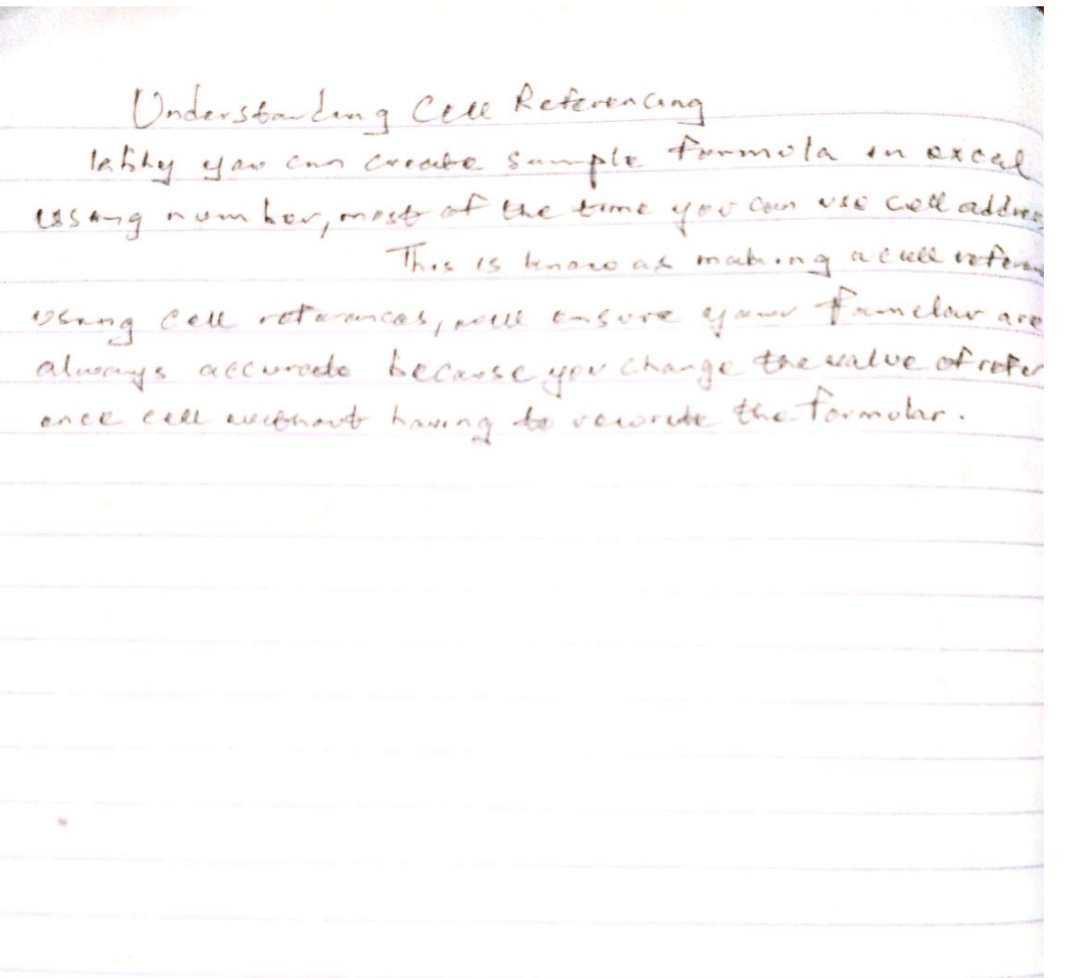 Understanding Cell Referencing
you can create simple formula in excel
using number, most of the time you can use cell addres
This is know as making a cell referen
using cell references, will ensure your are
always accurate because you change the value of refer
ence cell without having to rewrite the formular.